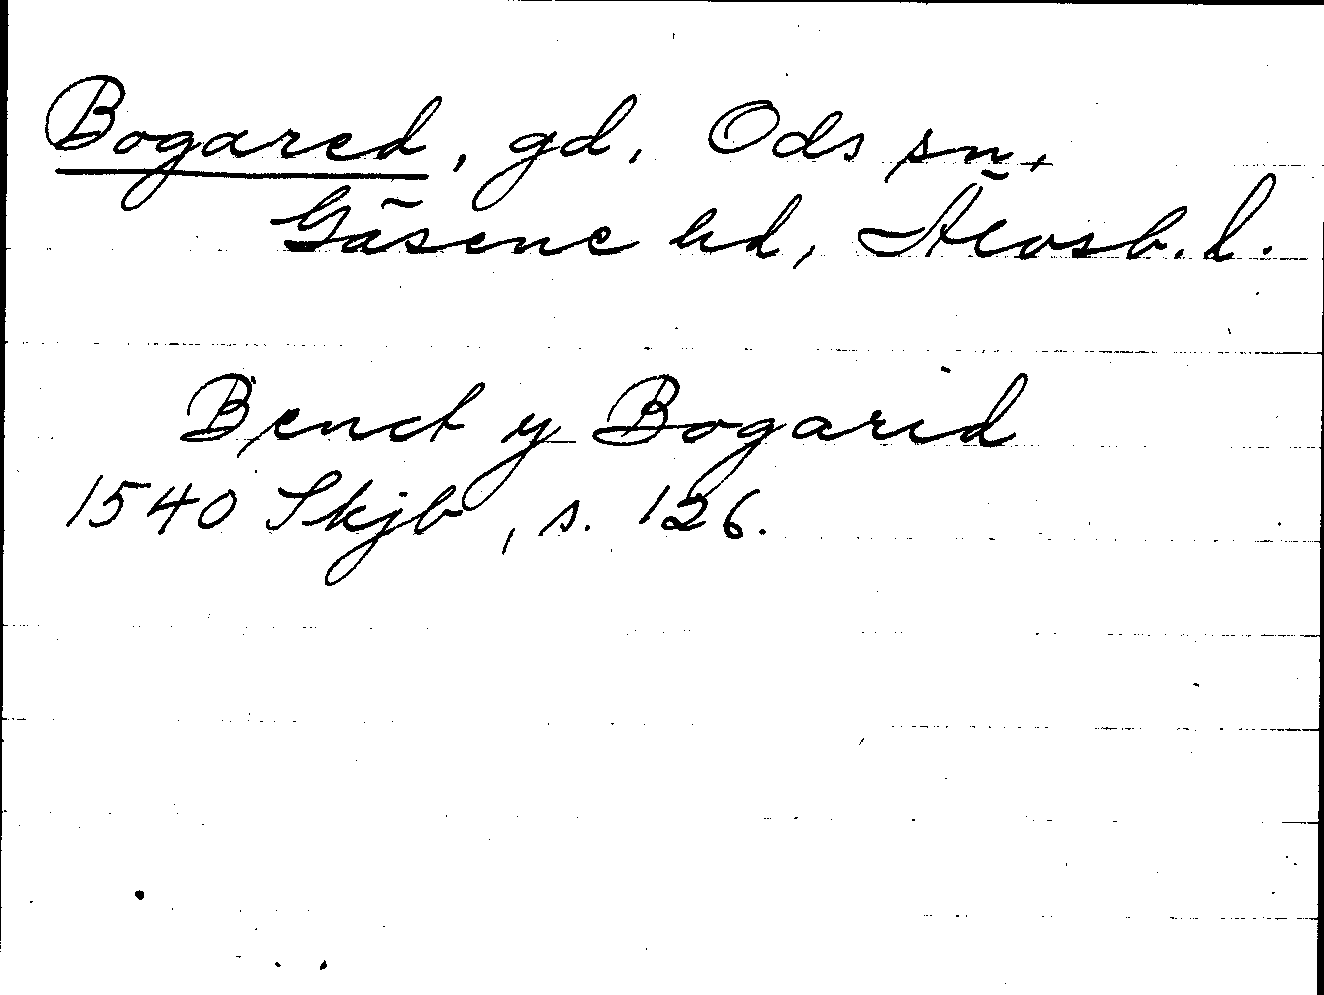 Bogared, gd, Ods sn,
Gäsene hd, Älvsb. l.
Benct y Bogarid
1540 Skjb, s. 126.